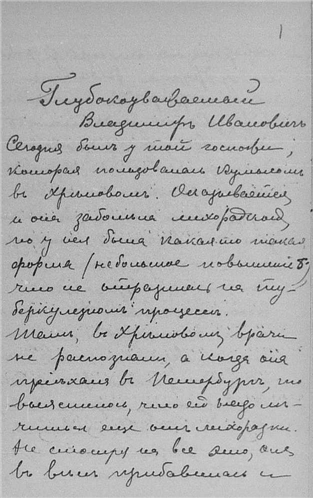 1
Глубокоуважаемый
Владимиръ Ивановичъ
Сегодня былъ у той госпожи,
которая пользовалась кумысомъ
въ Хрѣновомъ. Оказывается
и она заболѣла лихорадкой,
но у нея была какая то такая
форма (небольшое повышеніе
что не отразилась на ту-
беркулезномъ процессѣ.
Тамъ, въ Хрѣновомъ, врачи
не распознали, а когда она
пріѣхала въ Петербургъ, то
выяснилось, что ей надо лѣ-
читься еще отъ лихорадки.
Не смотря на все это, она
въ вѣсѣ прибавилась и